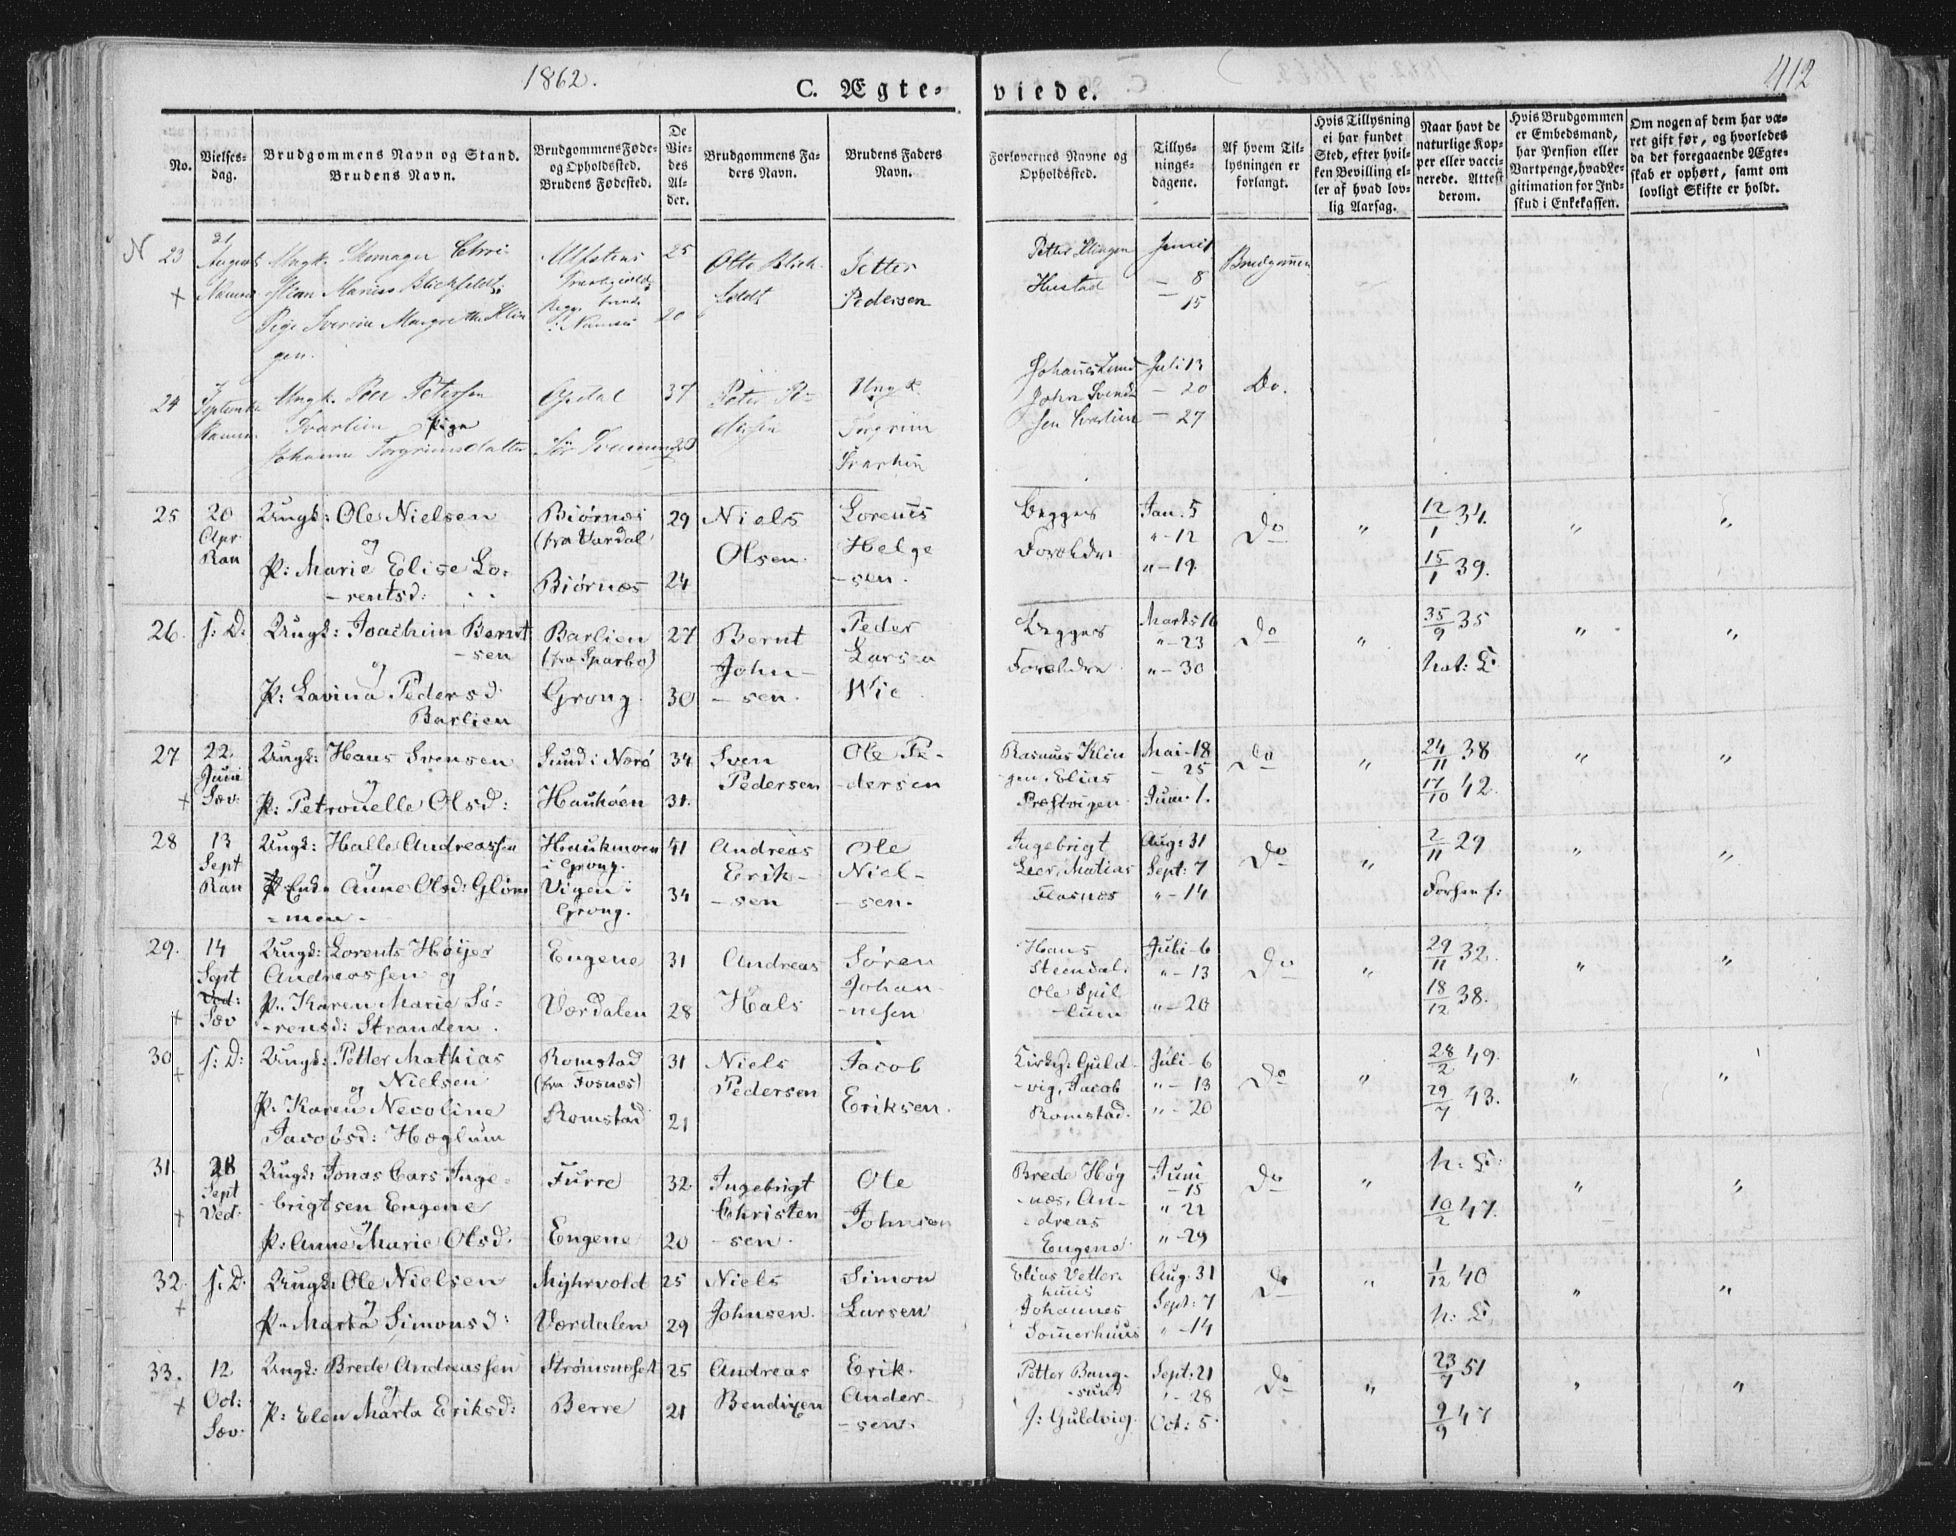 1862.
412
C. Ægte-
viede.
No.
Vielses-
dag.
Brudgommens Navn og Stand.
Brudens Navn.
Brudgommens Føde-
og Opholdssted.
Brudens Fødested.
De
Vie-
des
Al-
der.
Brudgommens Fa-
ders Navn.
Brudens Faders
Navn.
Forlovernes Navne og
Opholdssted.
Tillys-
nings-
dagene.
Af hvem Til-
lysningen er
forlangt.
Hvis Tillysning
ei har fundet
Sted, efter hvil-
ken Bevilling el-
ler af hvad lov-
lig Aarsag.
Naar havt de
naturlige Kop-
per eller vacci-
nerede. Attest
derom.
Hvis Brudgommen
er Embedsmand,
har Pension eller
Vartpenge, hvad Le-
gitimation for Ind-
skud i Enkekassen.
Om nogen af dem har væ-
ret gift før, og hvorledes
da det foregaaende Ægte-
skab er ophørt, samt om
lovligt Skifte er holdt.
N 23
21
August
Ungk. Skomager Chri-
stian Marius Blichfeldt
Pige Iverine Margrethe Klin
gen.
25
20
Otto Blich
feldt
Petter
Pedersen
Petter Klingen
Hustad
Juni 1
- 8
- 15
Brudgommen
24
Ungk. Peer Petersen
Svarlien Pige
Johanna Torgrimsdatter
Opdal
37
Peter
Ungk.
Torgrim
Johannes Lund
John Svend
sen Svarlien
Juli 13
- 20
- 27
Do.
25
20
Apr
Ran
Ungk: Ole Nielsen
og
P: Marie Elise Lo-
- rentsd:
Biørnes
(fra Værdal
Biørnæs
29
24
Niels
Olsen.
Lorents
Helge
- sen.
Begges
Forældre
Jan. 5
" - 12
" - 19
Do
"
12/1 34.
15/1 39.
"
"
26.
s: D:
Ungk: Joachim Bernt
- sen
og
P: Lavina Pedersd.
Barlien
Barlien
(fra Sparbo)
Grong.
27
30
Bernt
John-
- sen.
Peder
Larsen
Wie
Begges
Forældre
Marts 16
" - 23
" - 30
Do
"
35/9 35
nat: K.
"
"
27
22.
Juni
Sæv.
+
Ungk: Hans Svensen
og
P: Petronelle Olsd:
Sund i Nærø
Hauhøen
34
31.
Sven
Pedersen
Ole Pe-
- dersen
Rasmus Klin
- gen, Elias
Præstvigen
Mai - 18
- 25
Juni 1.
Do
"
24/11 38
17/10 42.
"
"
28
13
Sept
Ran
Ungk: Halle Andreassen
og
Enke Anne Olsd: Gløm
- men -
Haukmoen
i Grong.
Vigen i
Grong.
41
34
Andreas
Erik-
- sen
Ole
Niel-
- sen.
Ingebrigt
Leer, Matias
Flasnæs
Aug: 31
Sept: 7
" - 14
Do
"
2/11 29
"
"
29.
14
Sept
Ved:
Sæv
+
Ungk: Lorents Høijer
Andreassen og
P: Karen Marie Sø-
- rensd: Stranden.
Engene
Værdalen
31
28
Andreas
Hals
Søren
Johan-
- nesen
Hans
Steendal.
Ole Spil
- lum
Juli - 6
" - 13
" - 20
Do
"
29/11 32.
18/12 38.
"
"
30
+
s: D:
Ungk: Petter Mathias
Nielsen
og
P: Karen Necoline
Jacobsd: Hæglum
Romstad
(fra Fosnæs)
Romstad
31
21
Niels
Pedersen
Jacob
Eriksen.
Guld-
- vig, Jacob
Romstad.
Juli - 6
" - 13
" - 20
Do
"
28/2 49.
29/7 43.
"
"
31
21
Sept
Ved.
+
Ungk: Jonas Cars Inge-
- brigtsen Engene
og
P: Anne Marie Olsd:
Furre
Engene
32
20
Ingebrigt
Christen
- sen.
Ole
Johnsen
Brede Høg
- næs, An-
- dreas
Engene.
Juni
- 15
" 22
" - 29
Do
"
n: K:
10/2 47.
"
"
32.
+
s: D:
Ungk: Ole Nielsen
og
P: Marta Simonsd:
Myhrvold
Værdalen
25
29
Niels
Johnsen.
Simon
Larsen
Elias Vetter-
huus
Johannes
Somerhuus
Aug. 31
Sept: 7
" - 14
Do
"
1/12 40
n: K.
"
"
33.
+
12
Oct:
Sæv.
Ungk: Brede Andreassen
og
P: Elen Marta Eriksd:
Strømsneset
Berre
25
21
Andreas
Bendixen
Erik.
Ander-
- sen.
Petter Bang-
- sund
J: Guldvig.
Sept: 21
" - 28
Oct: 5.
Do
"
23/7 51
9/9 47
"
"